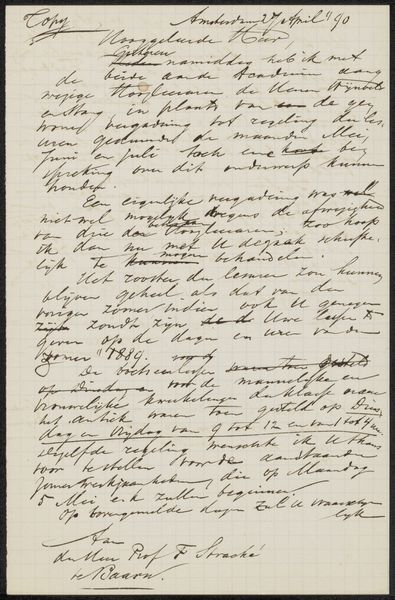 Copy Amsterdam, 27 April '90
Hooggeleerde Heer,
Gisteren
namiddag heb ik met
de beide aan de Academie aan-
wezige Hoogleeraren, de Heeren
en Stang in plaats van een ge-
wone vergadering tot regeling der les-
uren gedurende de maanden Mei,
Juni en Juli toch eene be-
spreking over dit onderwerp kunnen
houden.
Een eigenlijke vergadering was
niet wel mogelijk wegens de afwezigheid
van drie der Hoogleeraren; zoo hoop
ik dan nu met U de zaak schrifte-
lijk te mogen behandelen.
Het rooster der lessen zou kunnen
blijven geheel als dat van den
vorigen zomer indien ook U genegen
zoudt zijn Uwe lessen te
geven op de dagen en uren van den
Zomer 1889.
De
op Dinsdag voor de mannelijke en
vrouwelijke kweekelingen der klasse naar
het antiek waren toen gesteld op Dins-
dag en Vrijdag van 9 tot 12 en van 1 tot 4 uur.
Dezelfde regeling wenschte ik U thans
voor te stellen voor de aanstaande
zomerwerkzaamheden, die op Maandag
5 Mei e.k. zullen beginnen.
Op bovengemelde dagen zal U waarschijn-
lijk
Aan
den Heer Prof F Stracké
te Baarn.